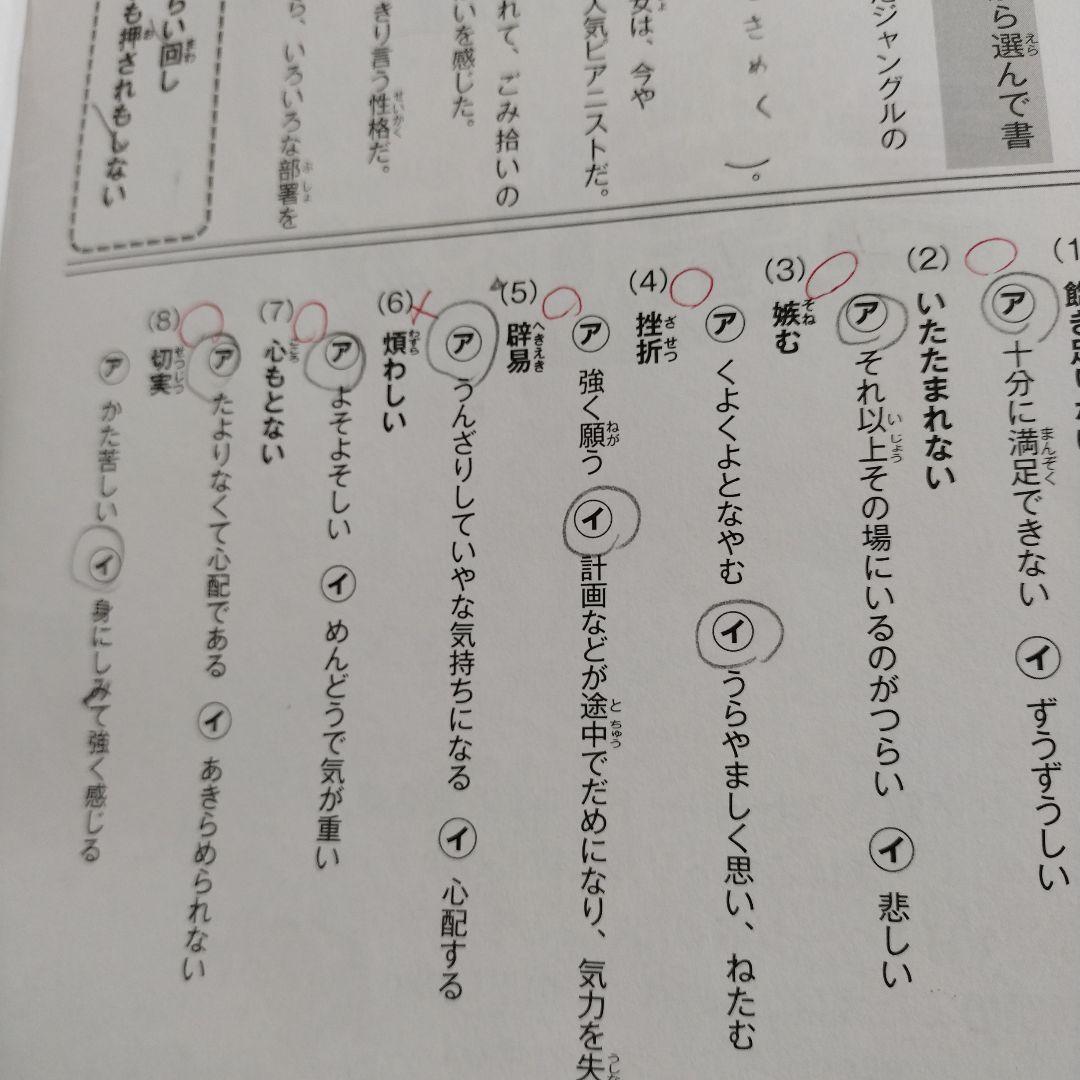 ら選んで書
ジャングルの
さめく）。
女は、今や
人気ピアニストだ。
れて、ごみ拾いの
いを感じた。
きり言う性格だ。
ら、いろいろな部署を
らい回し
も押されもしない
(1)
飽き足りない
ア 十分に満足できない イ ずうずうしい
(2) いたたまれない
ア それ以上その場にいるのがつらい イ 悲しい
(3) 嫉む
ア くよくよとなやむ イ うらやましく思い、ねたむ
(4) 挫折
ア 強く願う イ 計画などが途中でだめになり、気力を失
(5) 辟易
ア うんざりしていやな気持ちになる イ 心配する
(6) 煩わしい
ア よそよそしい イ めんどうで気が重い
(7) 心もとない
ア たよりなくて心配である イ あきらめられない
(8) 切実
ア かた苦しい イ 身にしみて強く感じる